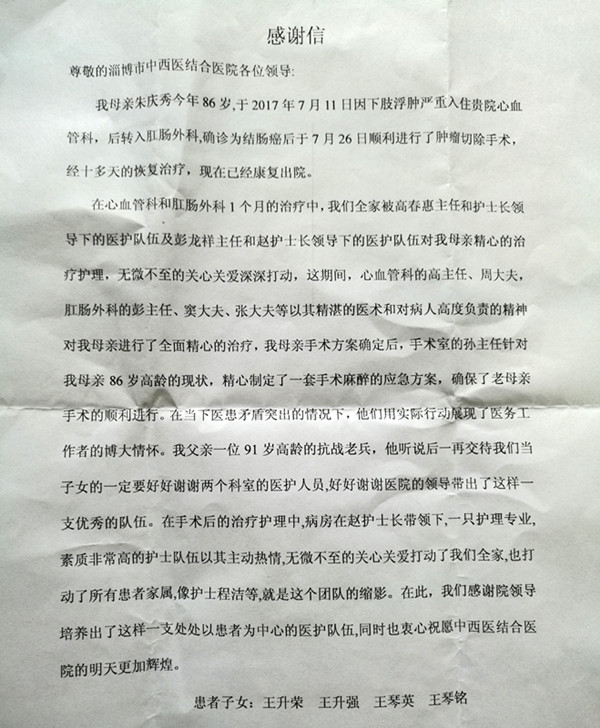 感谢信
尊敬的淄博市中西医结合医院各位领导:
我母亲朱庆秀今年86岁,于2017年7月11日因下肢浮肿严重入住贵院心血
管科，后转入肛肠外科,确诊为结肠癌后于7月26日顺利进行了肿瘤切除手术，
经十多天的恢复治疗，现在已经康复出院。
在心血管科和肛肠外科1个月的治疗中，我们全家被高春惠主任和护士长领
导下的医护队伍及彭龙祥主任和赵护士长领导下的医护队伍对我母亲精心的治
疗护理，无微不至的关心关爱深深打动，这期间，心血管科的高主任、周大夫，
肛肠外科的彭主任、窦大夫、张大夫等以其精湛的医术和对病人高度负责的精神
对我母亲进行了全面精心的治疗，我母亲手术方案确定后，手术室的孙主任针对
我母亲86岁高龄的现状，精心制定了一套手术麻醉的应急方案，确保了老母亲
手术的顺利进行。在当下医患矛盾突出的情况下，他们用实际行动展现了医务工
作者的博大情怀。我父亲一位91岁高龄的抗战老兵，他听说后一再交待我们当
子女的一定要好好谢谢两个科室的医护人员,好好谢谢医院的领导带出了这样一
支优秀的队伍。在手术后的治疗护理中,病房在赵护士长带领下,一只护理专业,
素质非常高的护士队伍以其主动热情,无微不至的关心关爱打动了我们全家,也打
动了所有患者家属,像护士程洁等,就是这个团队的缩影。在此，我们感谢院领导
培养出了这样一支处处以患者为中心的医护队伍,同时也衷心祝愿中西医结合医
院的明天更加辉煌。
患者子女：王升荣 王升强 王琴英 王琴铭